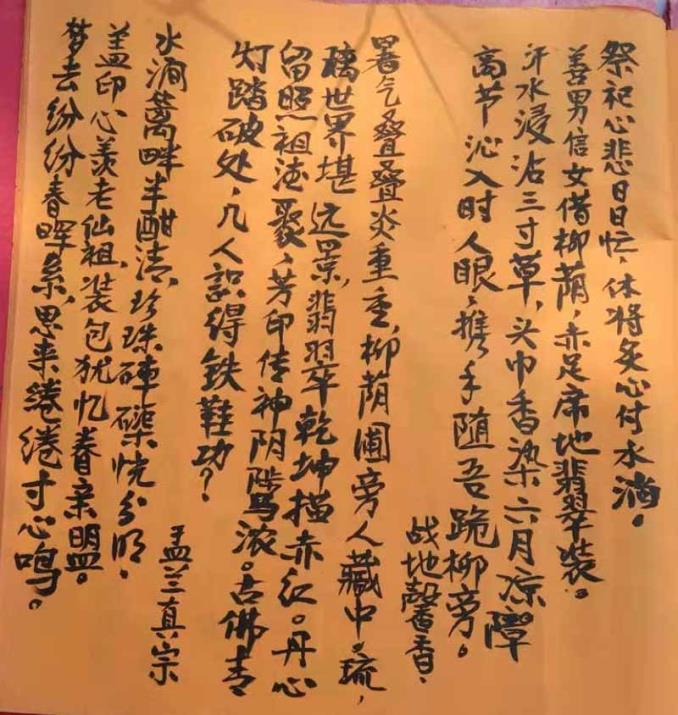 祭祀心悲日日忙，休将炙心付水淌。
善男信女借柳荫，赤足席地翡翠装。
汗水浸沾三寸草，头巾香染六月凉障
高节沁入时人眼，携手随吾跪柳旁。
战地馨香．
暑气叠叠炎重重，柳荫圃旁人藏中。琉，
璃世界堪远景，翡翠乾坤描赤红。丹心
留照祖德聚，芳印传神阴骘浓。古佛青
灯踏破处，几人識得铁鞋功？
孟兰真宗
水涧蓠畔半酣清，珍珠砗磲恍分明．
盖印心羡老仙祖，装包犹忆眷亲盟。
梦去纷纷春晖系，思来绻绻寸心鸣。